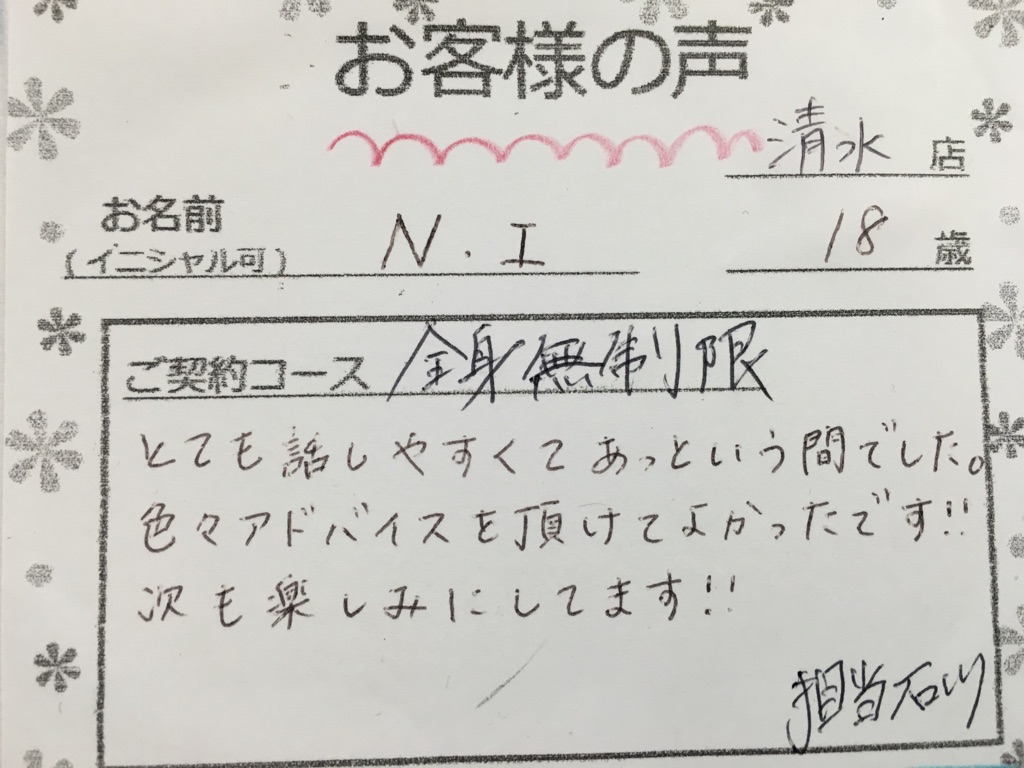 お客様の声
清水 店
お名前
(イニシャル可) N.I 18 歳
ご契約コース 全身無制限
とても話しやすくてあっという間でした。
色々アドバイスを頂けてよかったです!!
次も楽しみにしてます!!
担当石川